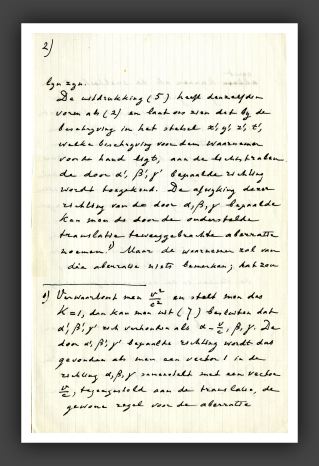 2)
lyn zyn.
De uitdrukking (5) heeft denzelfden
vorm als (2) en laat ons zien dat by de
beschryving in het stelsel x', y', z', t',
welke beschryving voor den waarnemer
voor de hand ligt, aan de lichtstralen
de door α', β', γ' bepaalde richting
wordt toegekend. De afwyking dezer
richting van de door α, β, γ bepaalde
kan men de door de onderstelde
translatie teweeggebrachte aberratie
noemen.¹) Maar de waarnemer zal van
die aberratie niets bemerken; hat zou
¹) Verwaarloost men v²/c² en stelt men dus
K=1, dan kan men uit (7) besluiten dat
α', β', γ' zich verhouden als α - v/c, β, γ. De
door α', β', γ' bepaalde richting wordt dus
gevonden als men een vector 1 in de
richting α, β, γ samenstelt met een vector
v/c, tegengesteld aan de translatie, de
gewone regel voor de aberratie